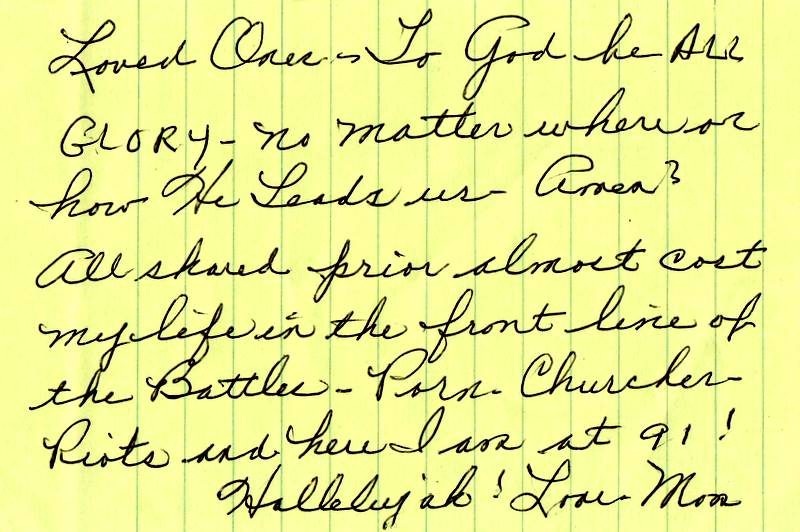 Loved Ones - To God be ALL
GLORY - no matter where or
how He Leads us - Amen?
All shared prior almost cost
my life in the front line of
the Battles - Porn - Churches -
Riots and here I am at 91!
Hallelujah! Love - Mom